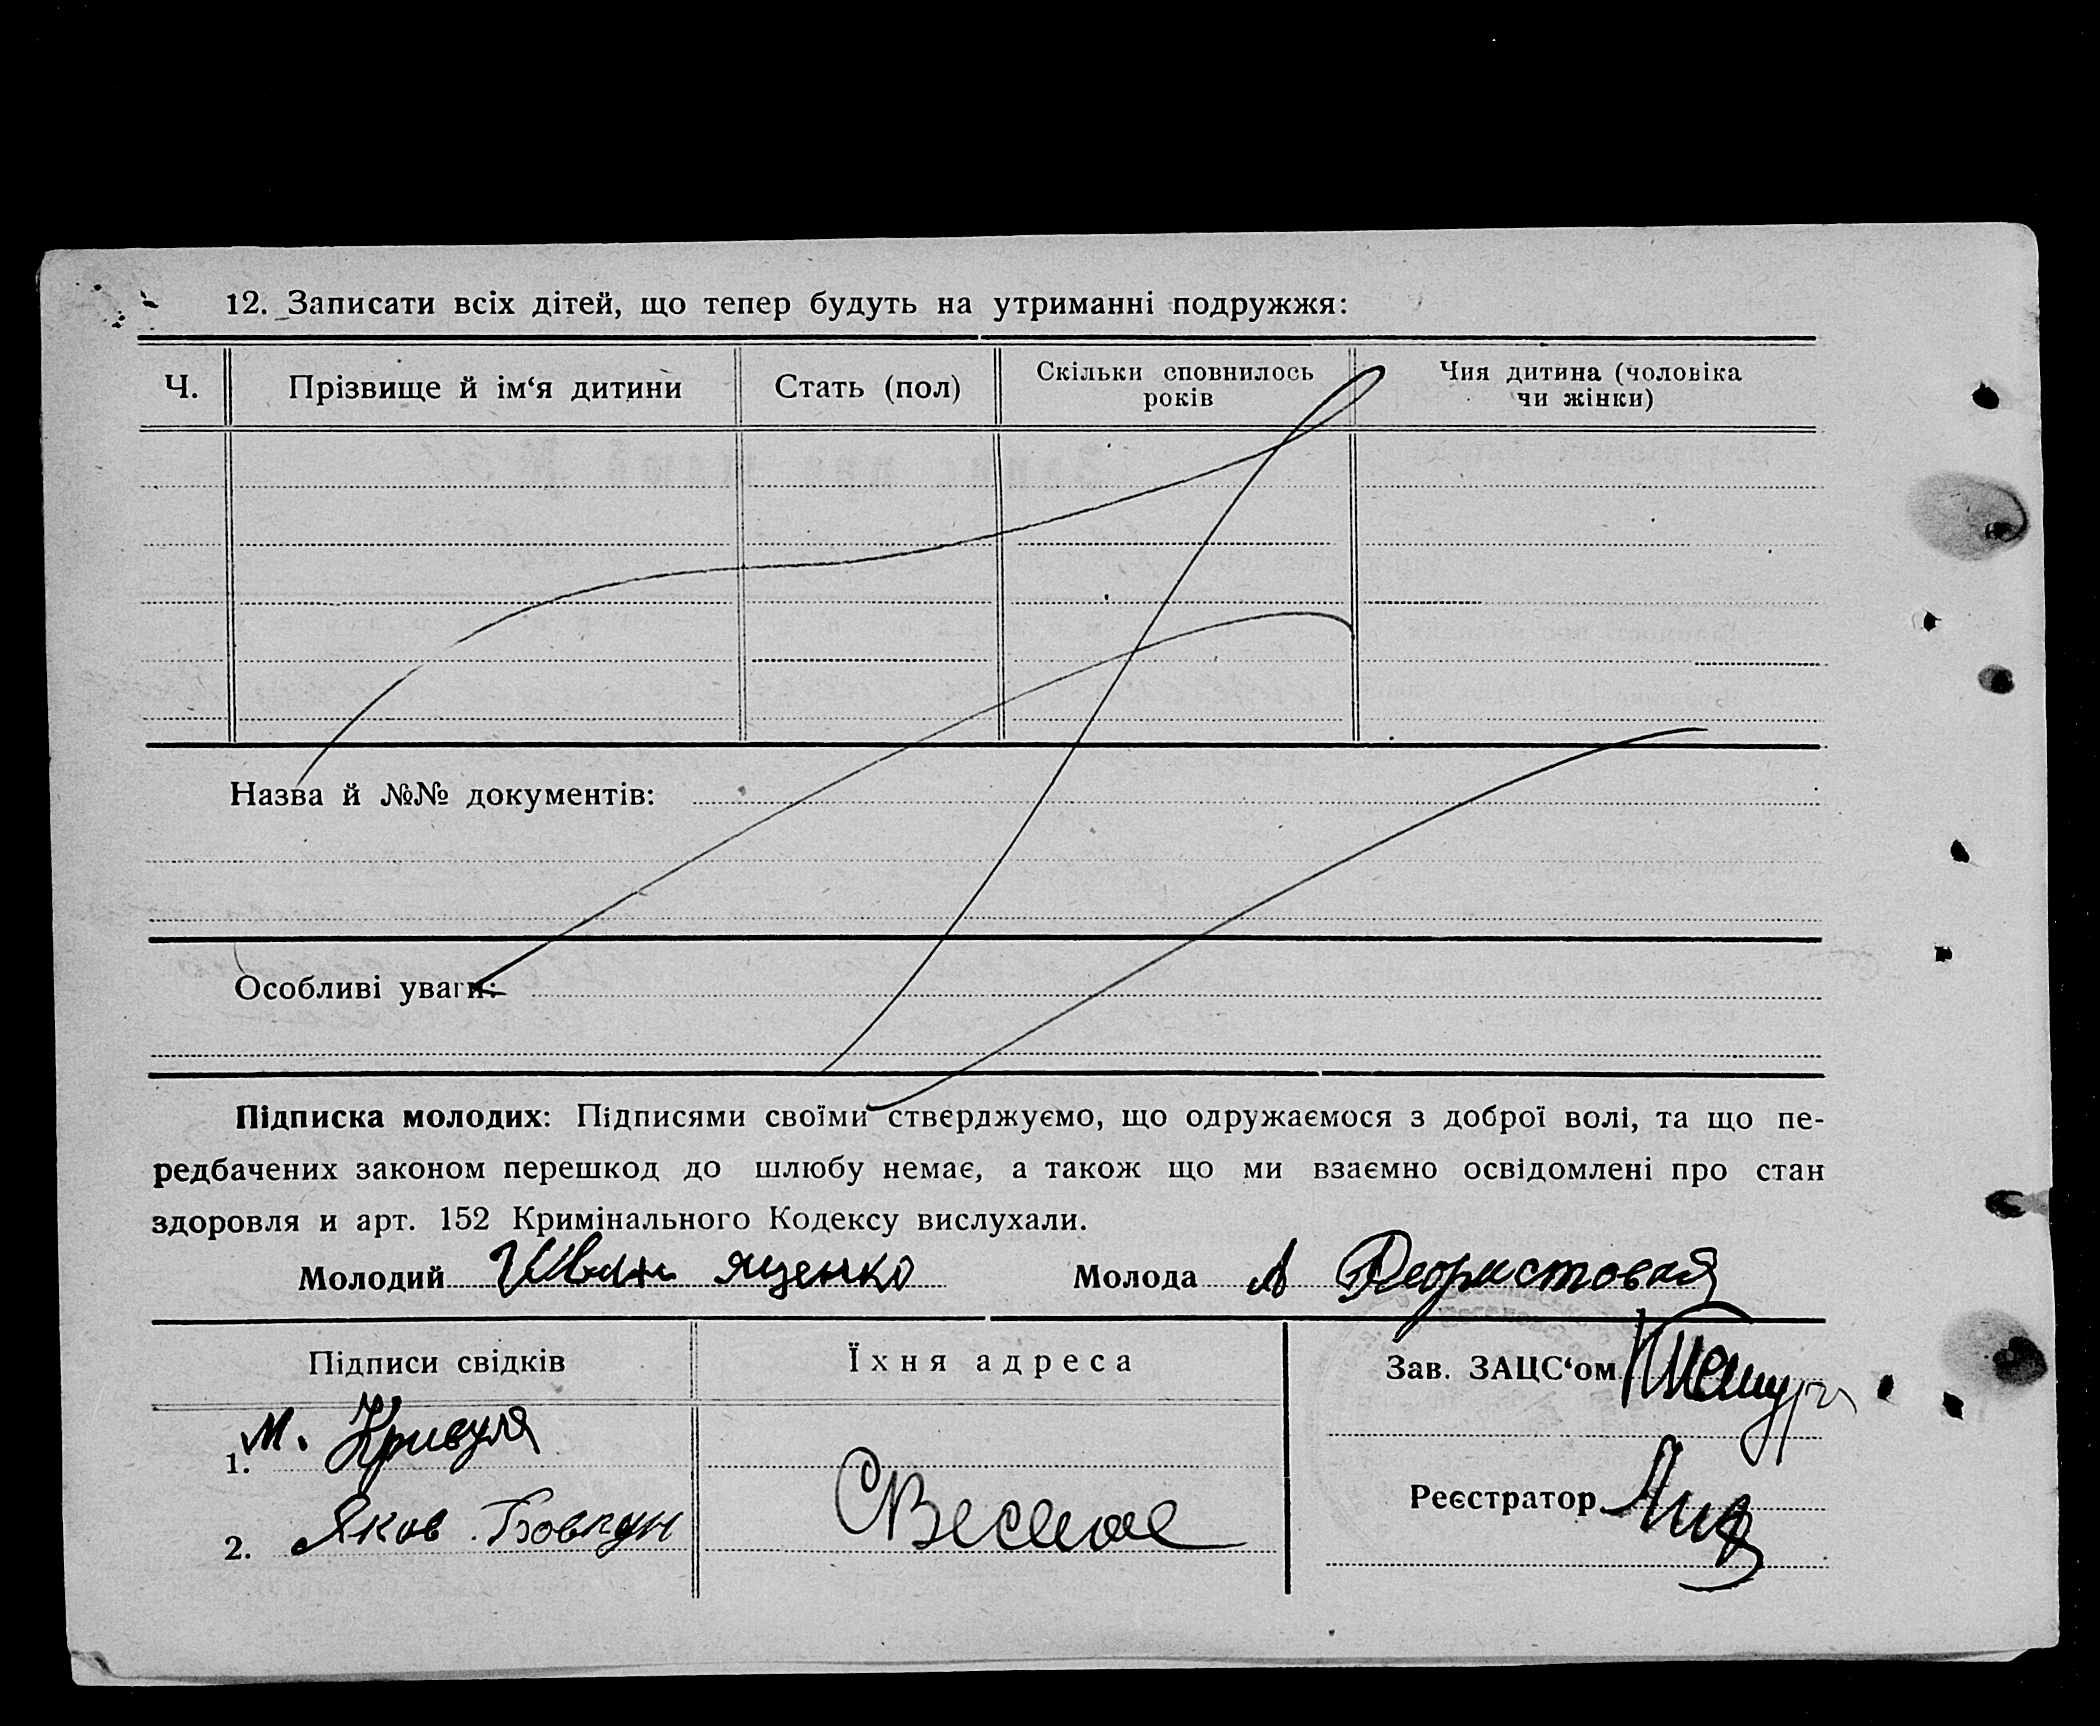 12. Записати всіх дітей, що тепер будуть на утриманні подружжя:
Ч.
Прізвище й ім‘я дитини
Стать (пол)
Скільки сповнилось
років
Чия дитина (чоловіка
чи жінки)
Назва й №№ документів:
Особливі уваги:
Підписка молодих: Підписями своїми стверджуємо, що одружаємося з доброї волі, та що пе-
редбачених законом перешкод до шлюбу немає, а також що ми взаємно освідомлені про стан
здоровля и арт. 152 Кримінального Кодексу вислухали.
Молодий Иван Ященко
Молода А
Підписи свідків
Їхня адреса
Зав. ЗАЦС‘ом
1. М. Кривуля
2. Яков Бовкун
С Веселое
Реєстратор